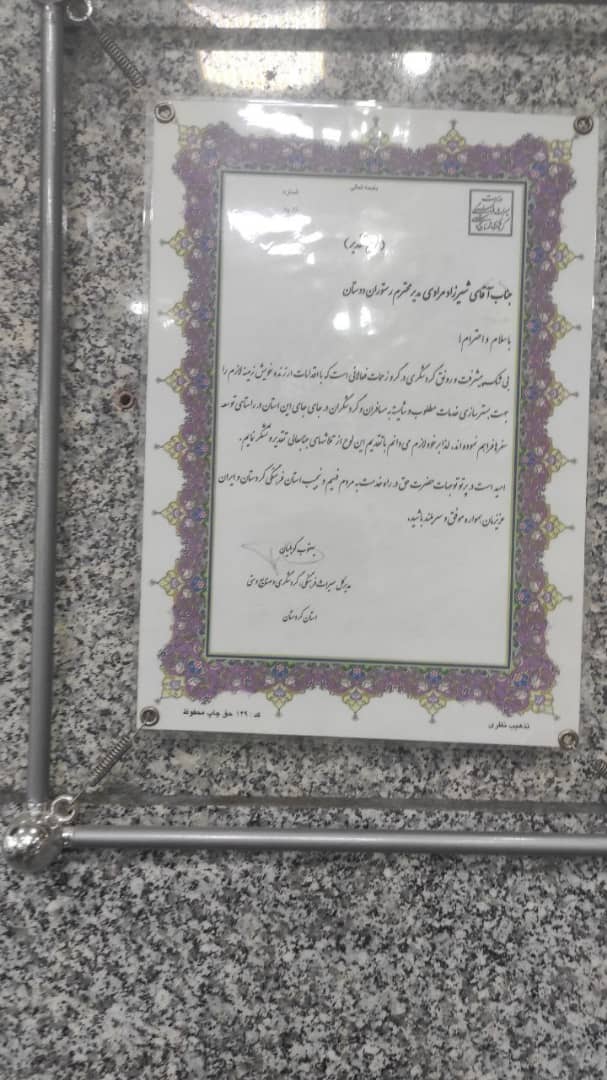 باسمه تعالی
شماره
جناب آقای شیرزاد مرادی مدیر محترم رستوران دوستان
با سلام و احترام؛
بی شک پیشرفت و رونق گردشگری در گرو زحمات فعالانی است که با اقدامات ارزنده خویش زمینه لازم را
جهت بسترسازی خدمات مطلوب و شایسته به مسافران و گردشگران در جای جای این استان در راستای توسعه
سفر فراهم نموده اند، لذا بر خود لازم می دانم با تقدیم این لوح از تلاشهای جنابعالی تقدیر و تشکر نمایم.
امید است در پرتو توجهات حضرت حق در راه خدمت به مردم فهیم و نجیب استان فرهنگی کردستان و ایران
عزیزمان همواره موفق و سربلند باشید.
یعقوب گویلیان
مدیرکل میراث فرهنگی، گردشگری و صنایع دستی
استان کردستان
تذهیب نظری
کد: ۱۲۹ حق چاپ محفوظ